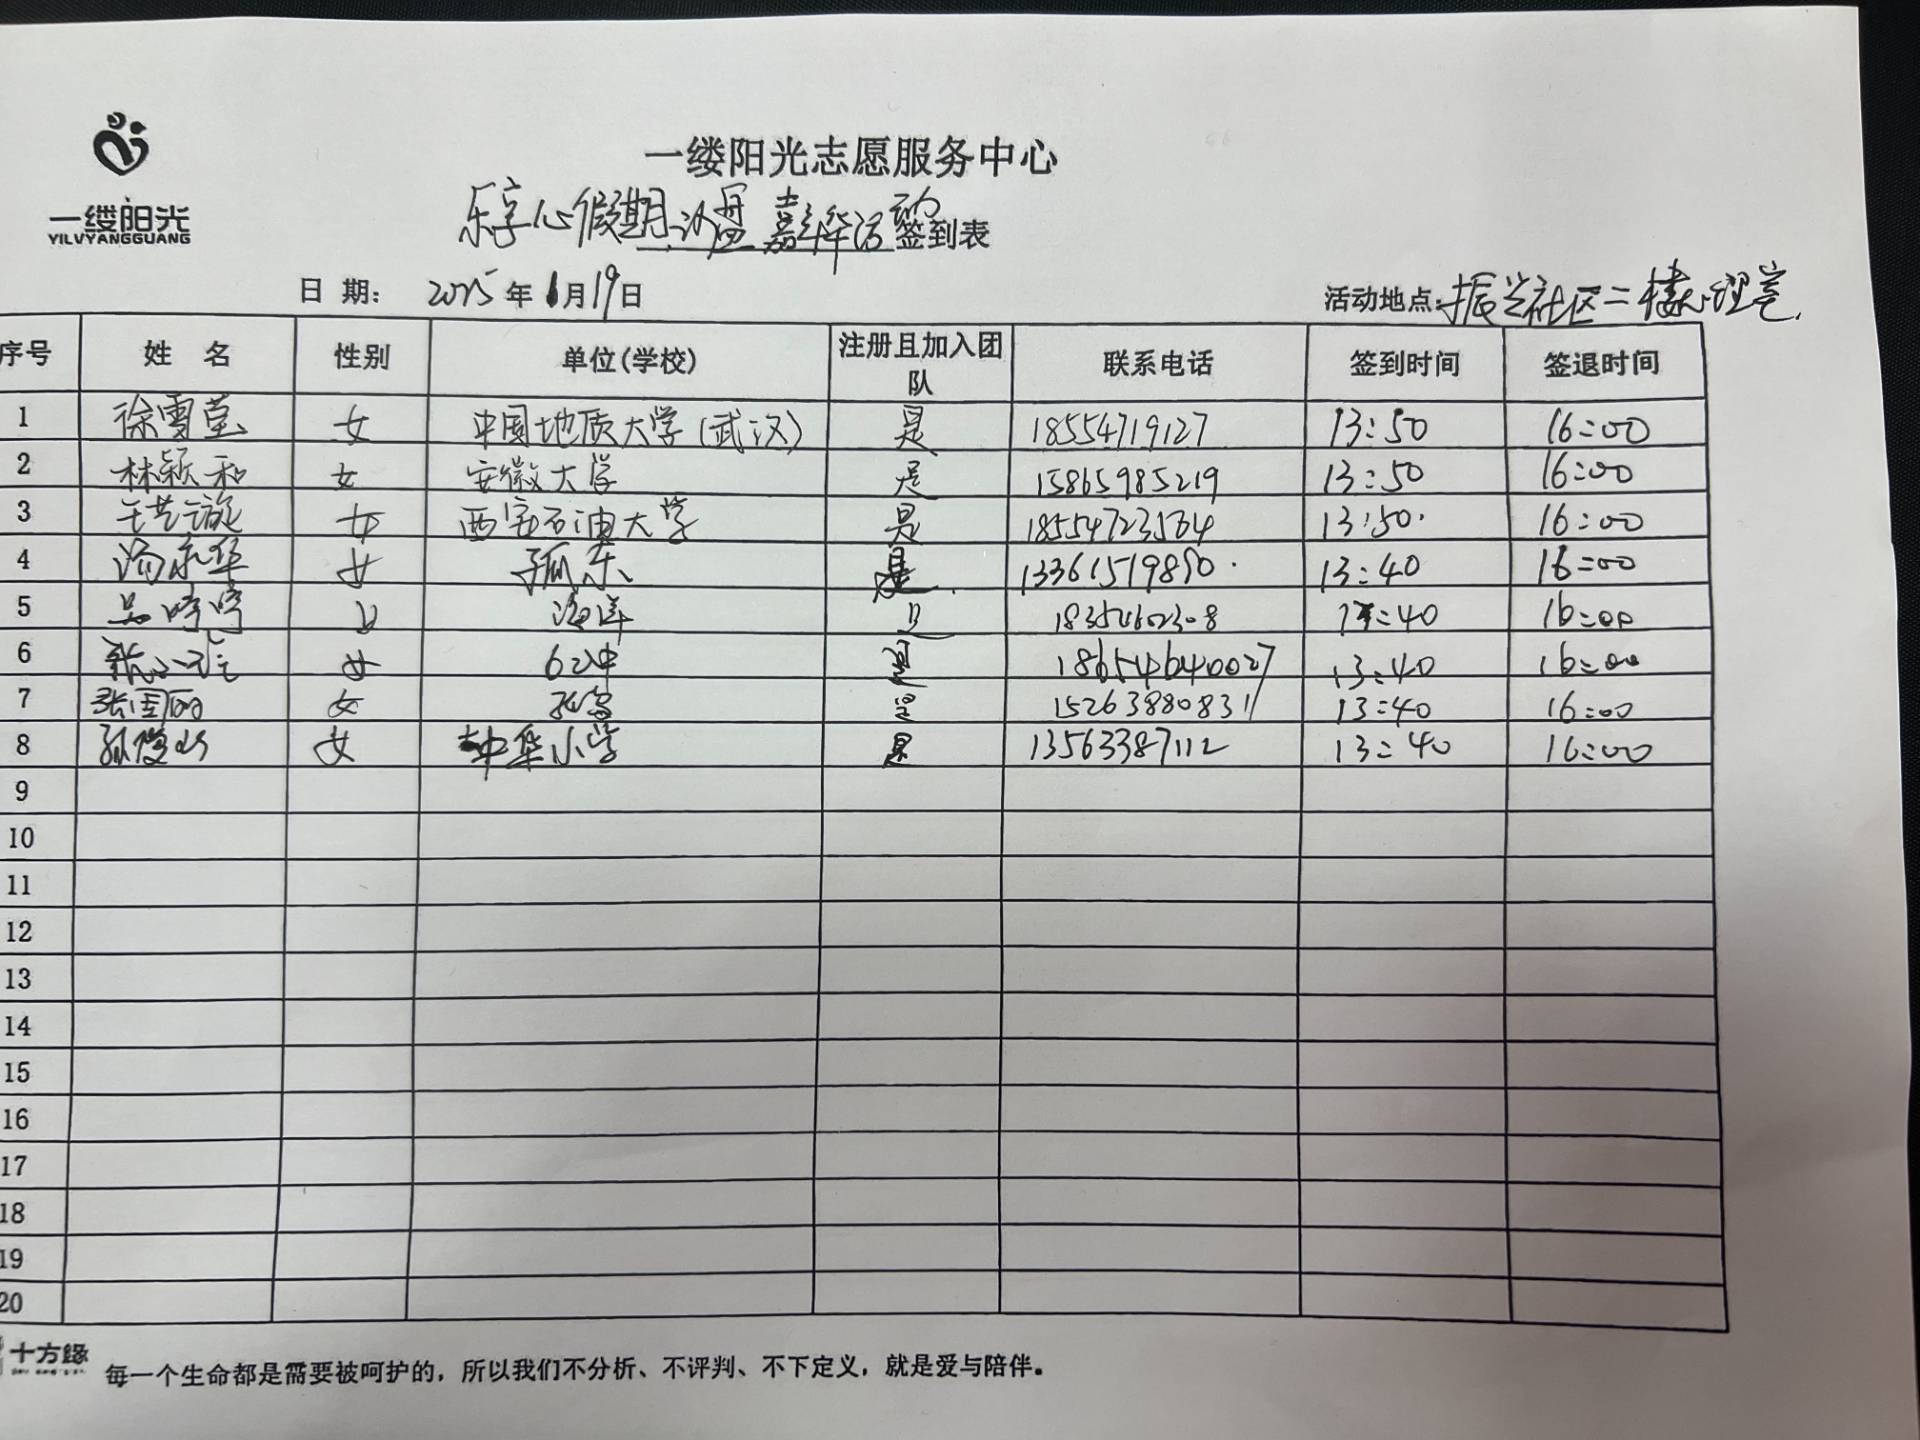 一缕阳光
YILVYANGGUANG
一缕阳光志愿服务中心
乐享心假期 沙盘嘉年华活动签到表
日 期： 2025年1月19日 活动地点：振兴社区二楼心理室
序号 姓 名 性别 单位(学校) 注册且加入团队 联系电话 签到时间 签退时间
1 徐雪莹 女 中国地质大学(武汉) 是 18554719127 13:50 16:00
2 林颖和 女 安徽大学 是 15865985219 13:50 16:00
3 女 西安石油大学 是 13:50 16:00
4 女 孤东 是 13:40 16:00
5 13:40 16:00
6 女 62中 18654640027 13:40 16:00
7 张国丽 女 是 15263880831 13:40 16:00
8 孙俊 女 中华小学 是 13563387112 13:40 16:00
9
10
11
12
13
14
15
16
17
18
19
20
十方缘 每一个生命都是需要被呵护的，所以我们不分析、不评判、不下定义，就是爱与陪伴。